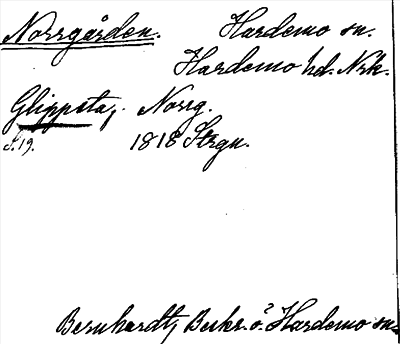 Norrgården. Hardemo sn.
Hardemo hd. Nrk.
Glippsta, Norrg.
s. 19. 1818 Strgn.
Bernhardt, Beskr. ö. Hardemo sn.